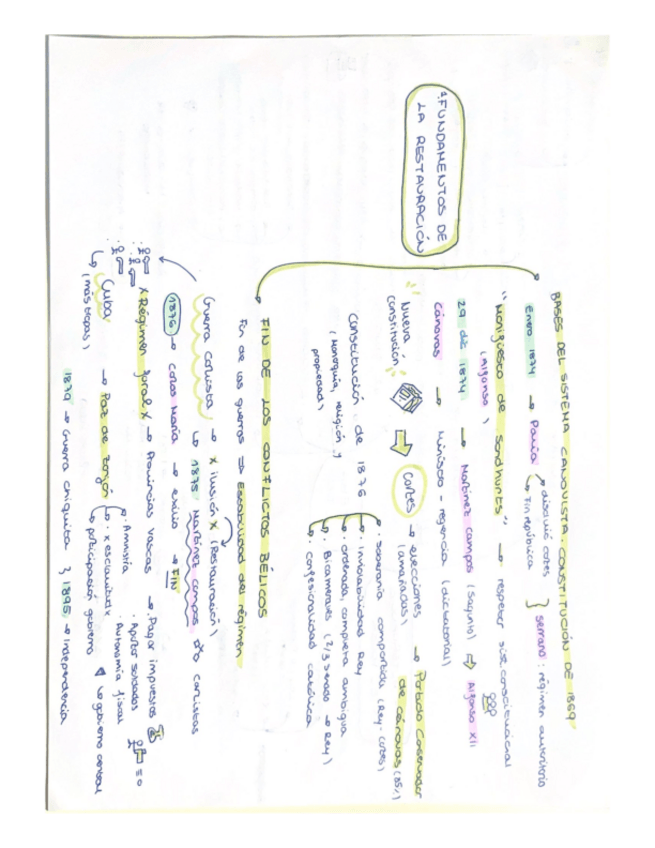 1. FUNDAMENTOS DE
LA RESTAURACIÓN
BASES DEL SISTEMA CANOVISTA. CONSTITUCIÓN DE 1869
Enero 1874 → Pavía
disolvió cortes
Fin república
Serrano: régimen autoritario
"Manifiesto de Sandhurts" → respetar sist. constitucional
(Alfonso)
29 dic 1874 → Martínez Campos (Sagunto) ⇒ Alfonso XII
Cánovas → Ministerio-regencia (dictatorial)
"Nueva constitución"
Cortes → elecciones → Partido Conservador
(amañadas) de Cánovas (85%)
Constitución de 1876
(Monarquía, religión y
propiedad)
Soberanía compartida (Rey-cortes)
Inviolabilidad Rey
ordenada, completa, ambigua
Bicamerales (2/3 senado → Rey)
confesionalidad católica
FIN DE LOS CONFLICTOS BÉLICOS
Fin de las guerras ⇒ Estabilidad del régimen
Guerra carlista → x ilusión x (Restauración)
↳ 1875 Martínez Campos carlistas
1876 → Carlos María → exilio → FIN
x Régimen foral x → Provincias vascas → Pagar impuestos
· Aportar soldados
Autonomía fiscal
Cuba → Paz de Zanjón
(más tropas)
· Amnistía
· x esclavitud x
participación gobierno
gobierno
1879 → Guerra chiquita } 1895 → Independencia